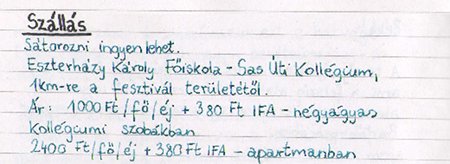 Szállás
Sátorozni ingyen lehet.
Eszterházy Károly Főiskola - Sas Úti Kollégium,
1km-re a fesztivál területétől.
Ár: 1000 Ft/fő/éj + 380 Ft IFA - négyágyas
kollégiumi szobákban
2400 Ft/fő/éj + 380 Ft IFA - apartmanban